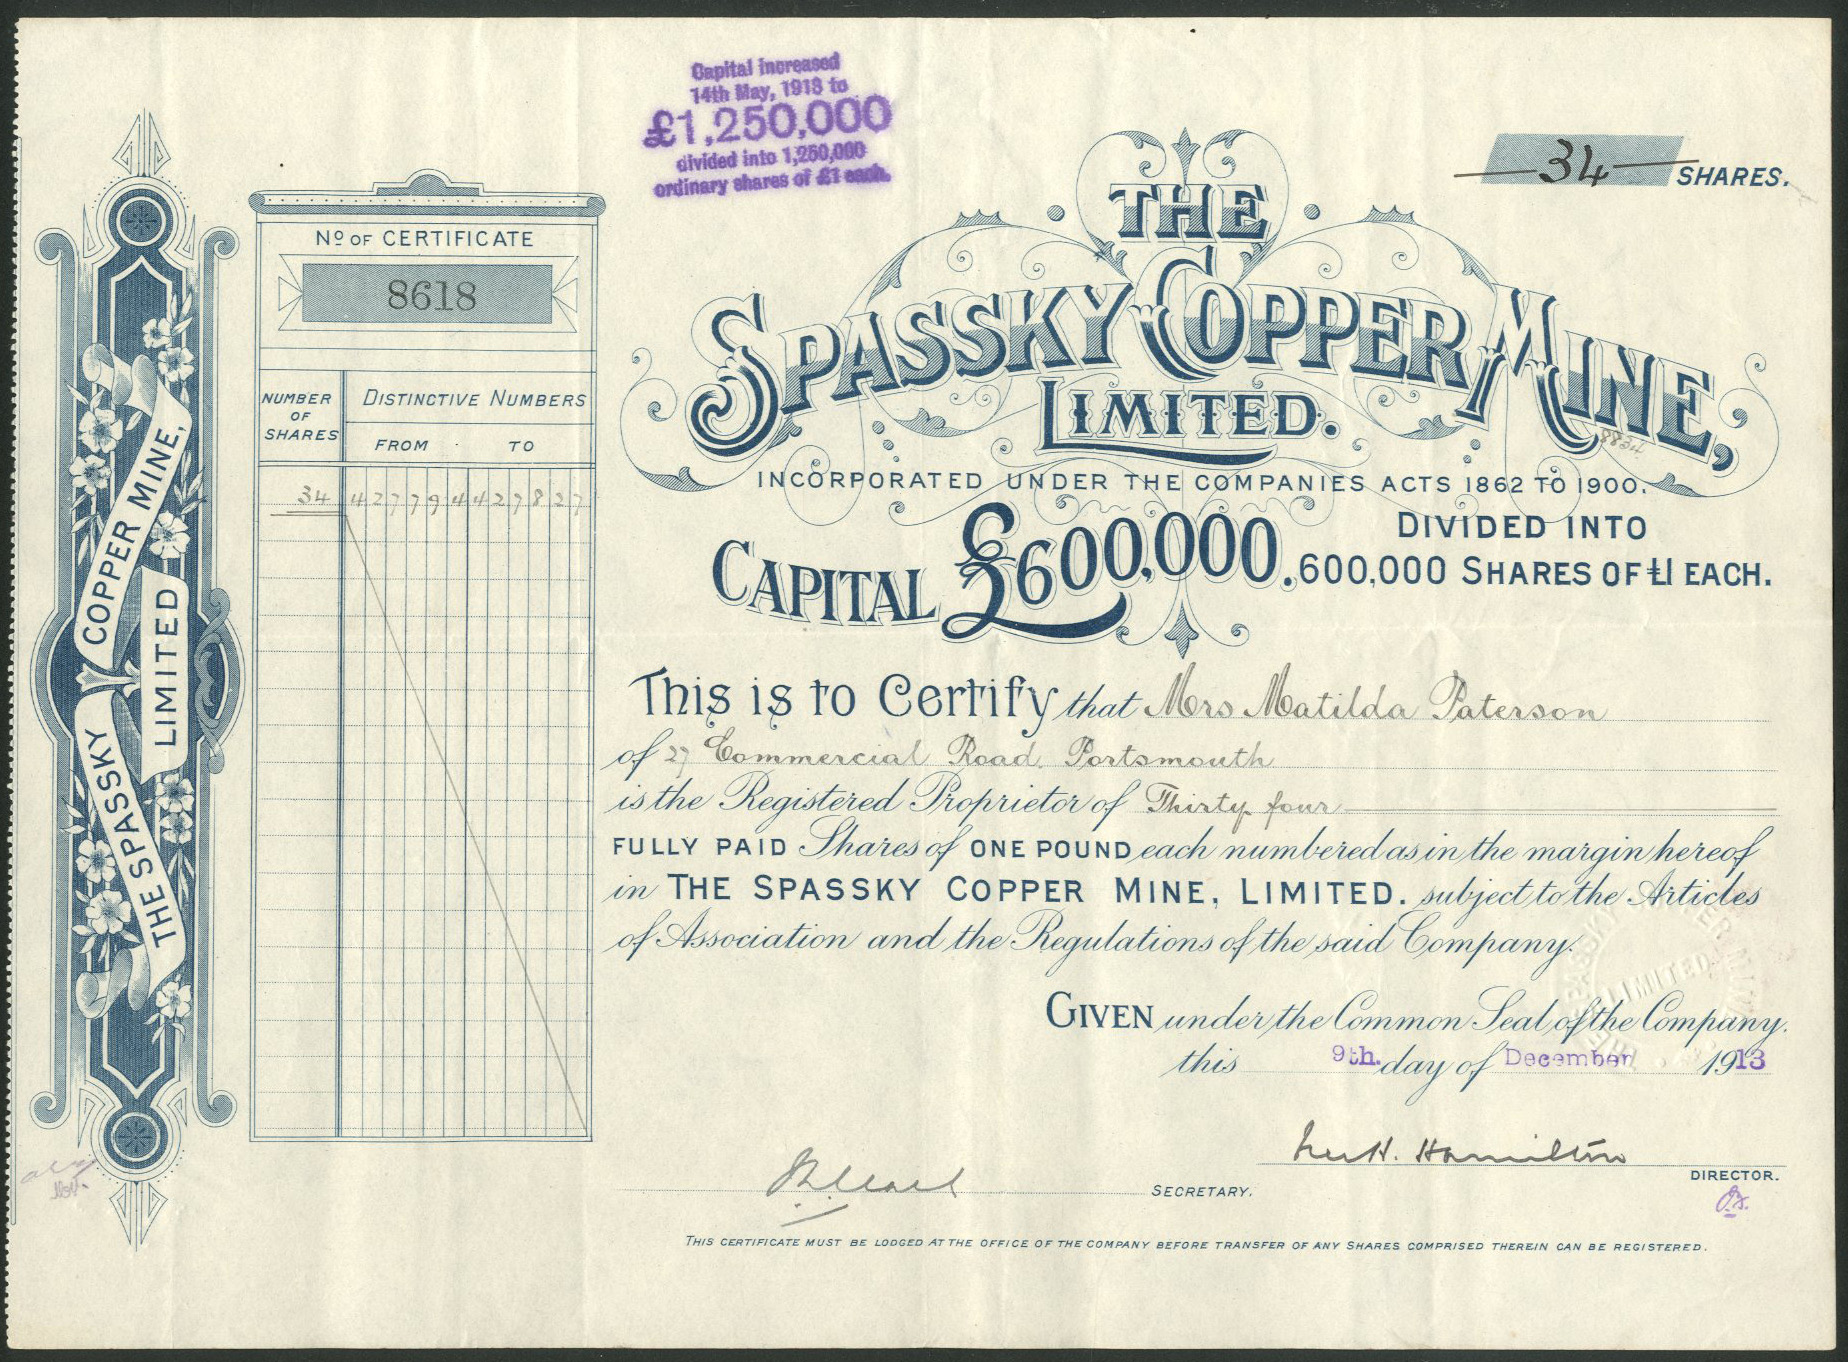 Capital increased
14th May, 1913 to
£1,250,000
divided into 1,250,000
ordinary shares of £1 each.
34 SHARES.
THE
SPASSKY COPPER MINE,
LIMITED.
INCORPORATED UNDER THE COMPANIES ACTS 1862 TO 1900.
CAPITAL £600,000. DIVIDED INTO
600,000 SHARES OF £1 EACH.
THE SPASSKY
COPPER MINE,
LIMITED
No OF CERTIFICATE
8618
NUMBER OF SHARES
DISTINCTIVE NUMBERS
FROM TO
34 427794 427827
This is to Certify that Mrs Matilda Paterson
of 27 Commercial Road. Portsmouth
is the Registered Proprietor of Thirty four
FULLY PAID Shares of ONE POUND each numbered as in the margin hereof
in THE SPASSKY COPPER MINE, LIMITED. subject to the Articles
of Association and the Regulations of the said Company.
GIVEN under the Common Seal of the Company.
this 9th. day of December 1913
Hamilton
DIRECTOR.
SECRETARY.
THIS CERTIFICATE MUST BE LODGED AT THE OFFICE OF THE COMPANY BEFORE TRANSFER OF ANY SHARES COMPRISED THEREIN CAN BE REGISTERED.